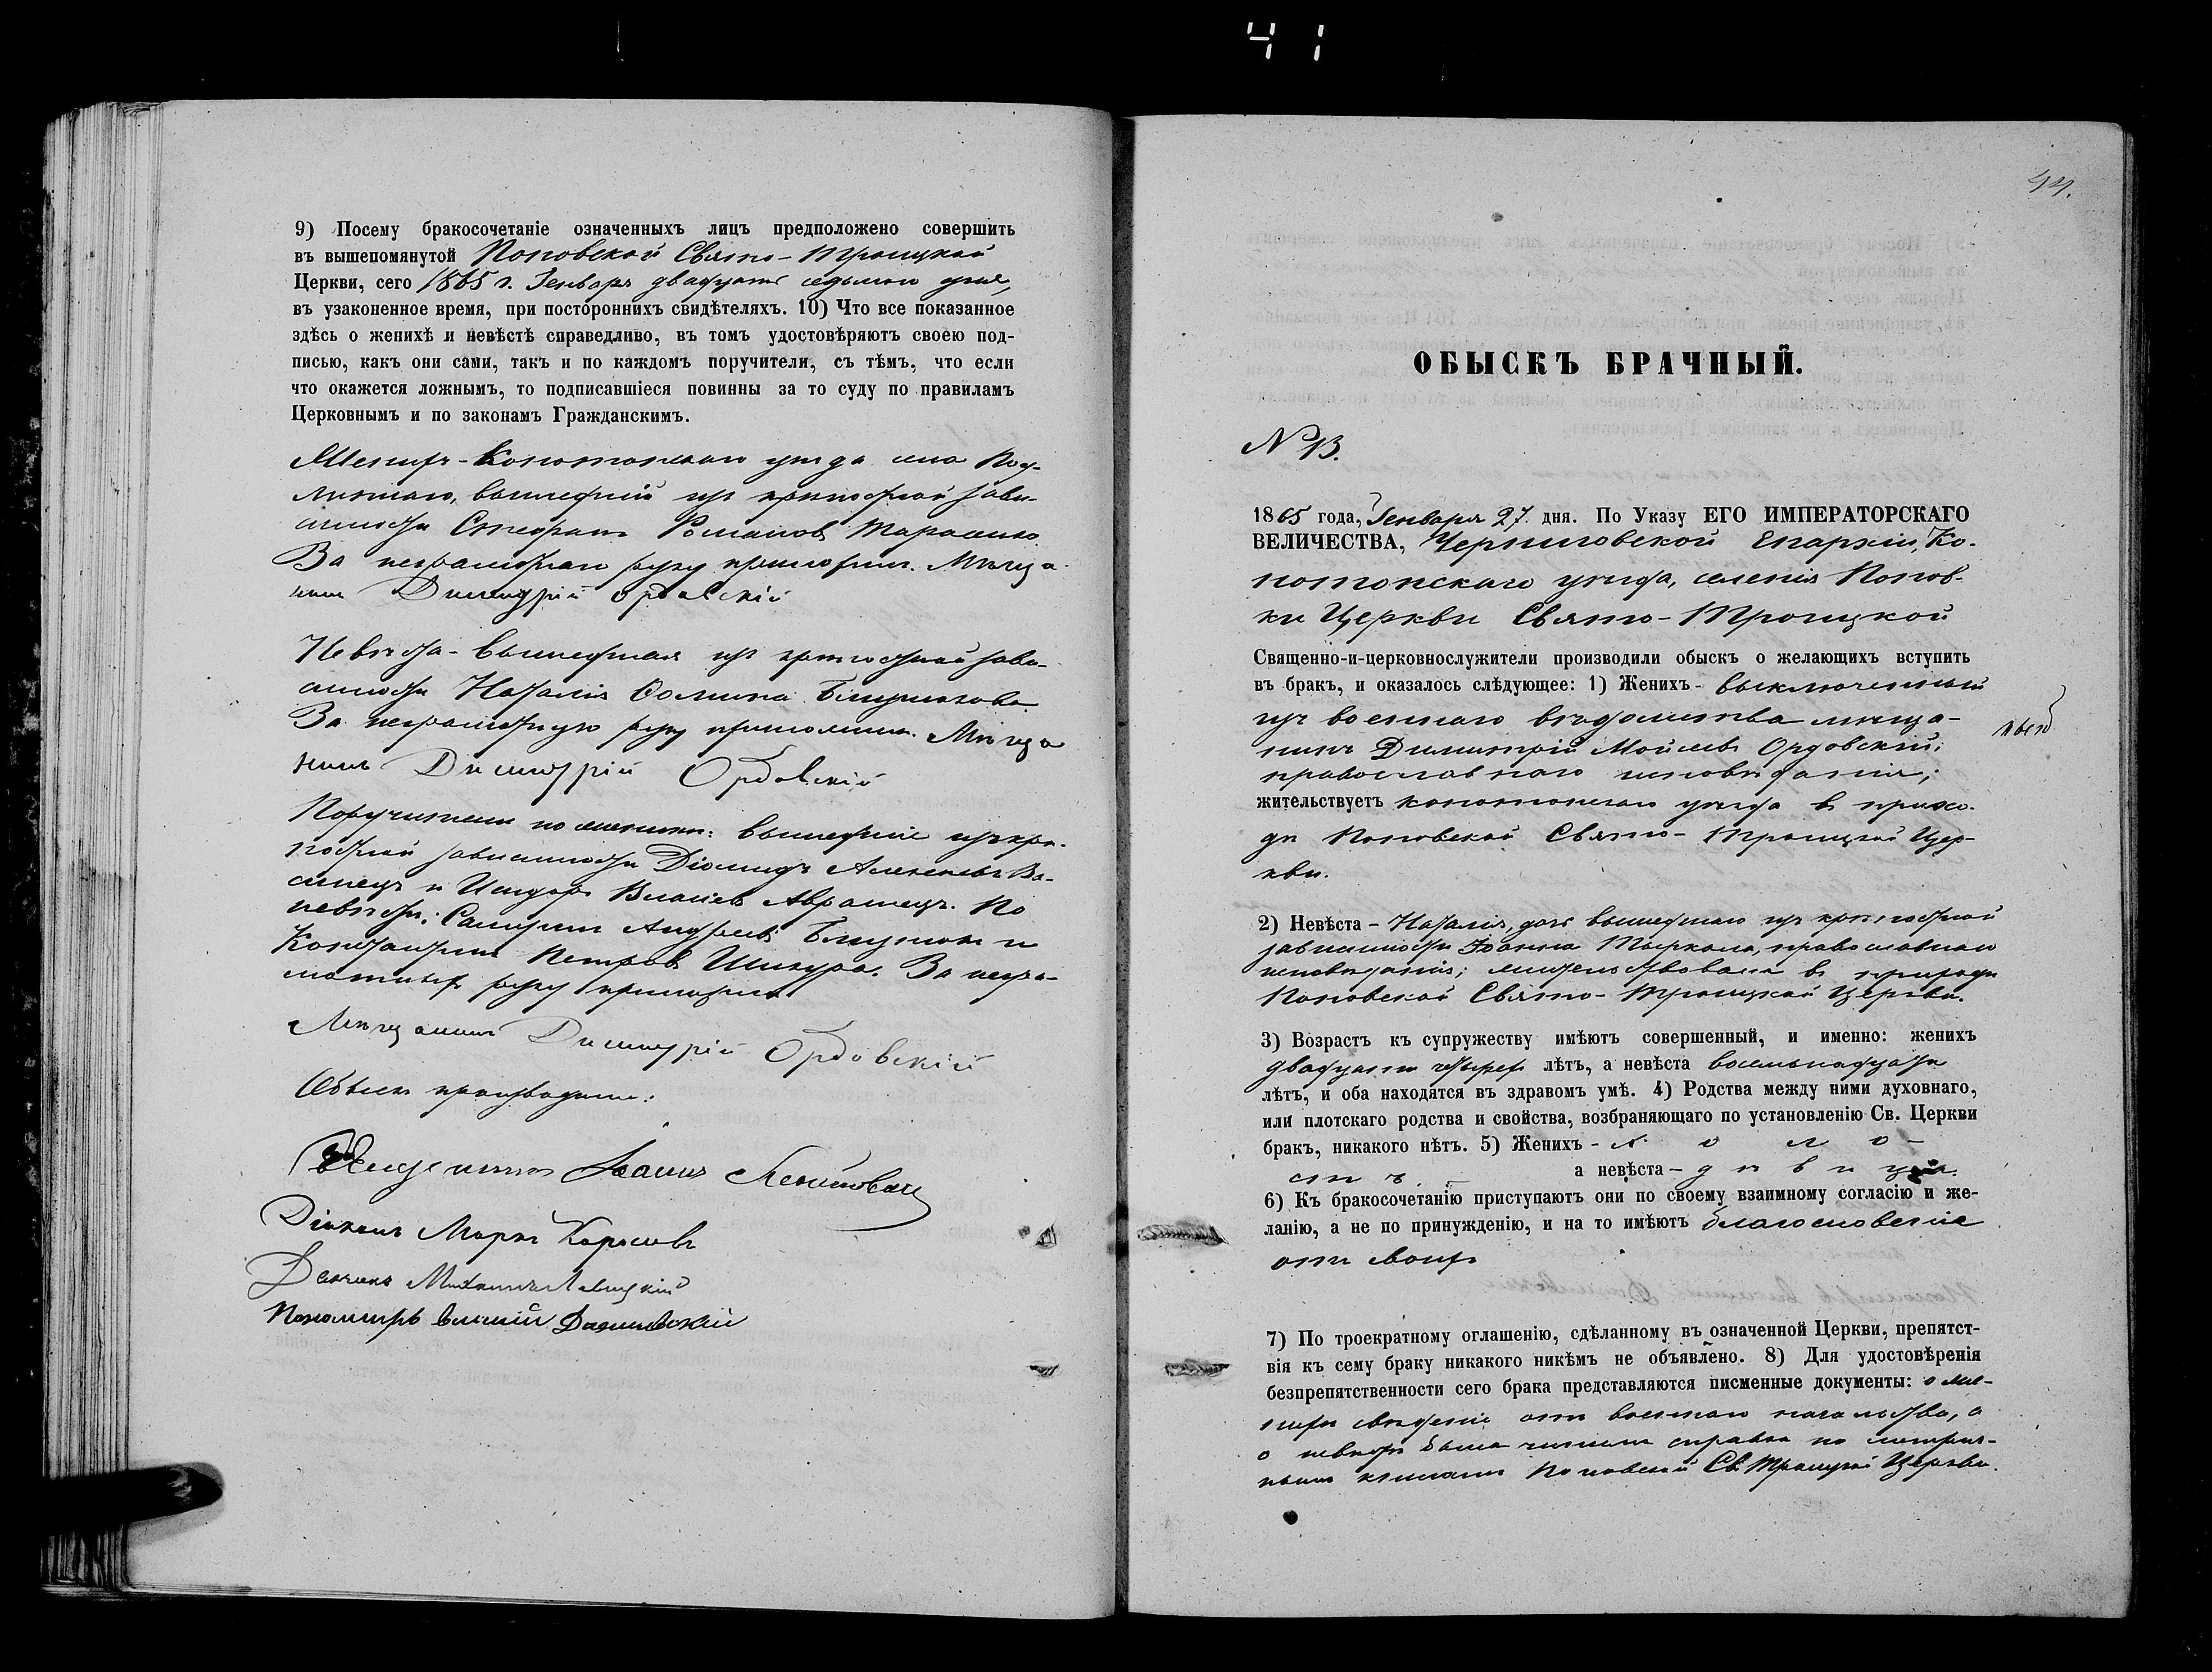 41
9) Посему бракосочетаніе означенныхъ лицъ предположено совершить
въ вышепомянутой Поповской Свято-Троицкой
Церкви, сего 1865 г. Генваря двадцать седьмого дня,
въ узаконенное время, при постороннихъ свидѣтеляхъ. 10) Что все показанное
здѣсь о женихѣ и невѣстѣ справедливо, въ томъ удостовѣряютъ своею под-
писью, какъ они сами, такъ и по каждомъ поручители, съ тѣмъ, что если
что окажется ложнымъ, то подписавшіеся повинны за то суду по правиламъ
Церковнымъ и по законамъ Гражданскимъ.
Женихъ - Конотопскаго уѣзда села Под-
липнаго, вышедшій изъ крѣпостной зави-
симости Стефанъ Романовъ Тарасенко
За неграмотнаго руку приложилъ Мѣща-
нинъ Димитрій Ордовскій
Невѣста - вышедшая изъ крѣпостной зави-
симости Наталія Ѳомина
За неграмотную руку приложилъ Мѣща
нинъ Димитрій Ордовскій
Поручители по женихѣ: вышедшіе изъ крѣ-
постной зависимости Діомидъ Алексѣевъ Ва-
силецъ и Исидоръ Власіевъ Аврамецъ. По
невѣстѣ: Андреевъ и
Константинъ Петровъ Шинура. За негра-
мотныхъ руку приложилъ
Мѣщанинъ Димитрій Ордовскій
Обыскъ производили:
Священникъ Іоаннъ
Діаконъ Маркъ
Дьячекъ Михаилъ Левицкій
Пономарь Василій
44.
ОБЫСКЪ БРАЧНЫЙ.
№ 13.
1865 года, Генваря 27 дня. По Указу ЕГО ИМПЕРАТОРСКАГО
ВЕЛИЧЕСТВА, Черниговской Епархіи, Ко-
нотопскаго уѣзда, селенія Попов-
ки Церкви Свято-Троицкой
Священно-и-церковнослужители производили обыскъ о желающихъ вступить
въ бракъ, и оказалось слѣдующее: 1) Женихъ - выключенный
изъ военнаго вѣдомства мѣща-
нинъ Димитрій Мойсеевъ Ордовскій;
православнаго исповѣданія;
жительствуетъ конотопскаго уѣзда въ прихо-
дѣ Поповской Свято-Троицкой Цер-
кви.
2) Невѣста - Наталія, дочь вышедшаго изъ крѣпостной
зависимости Іоанна Тыркала, православнаго
исповѣданія; жительствовала въ приходѣ
Поповской Свято-Троицкой Церкви.
3) Возрастъ къ супружеству имѣютъ совершенный, и именно: женихъ
двадцати четырехъ лѣтъ, а невѣста восемьнадцати
лѣтъ, и оба находятся въ здравомъ умѣ. 4) Родства между ними духовнаго,
или плотскаго родства и свойства, возбраняющаго по установленію Св. Церкви
бракъ, никакого нѣтъ. 5) Женихъ - холо-
стъ. а невѣста - дѣвица.
6) Къ бракосочетанію приступаютъ они по своему взаимному согласію и же-
ланію, а не по принужденію, и на то имѣютъ благословеніе
отъ своихъ
7) По троекратному оглашенію, сдѣланному въ означенной Церкви, препятст-
вія къ сему браку никакого никѣмъ не объявлено. 8) Для удостовѣренія
безпрепятственности сего брака представляются писменные документы: о же-
нихѣ свѣденіе отъ военнаго начальства, а
о невѣстѣ была чинима справка по метрич-
нымъ книгамъ Поповской Св. Троицкой Церкви.